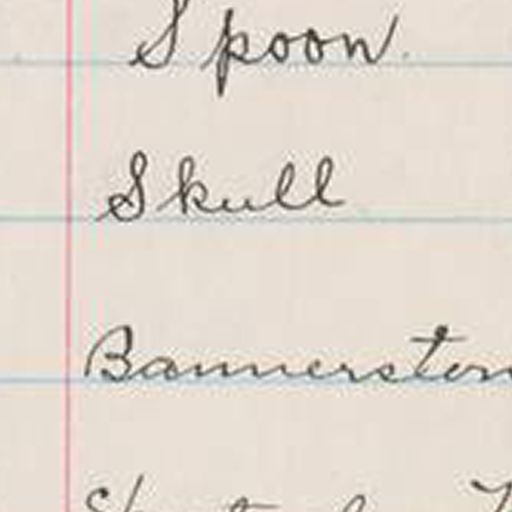 Spoon
Skull
Bannerston